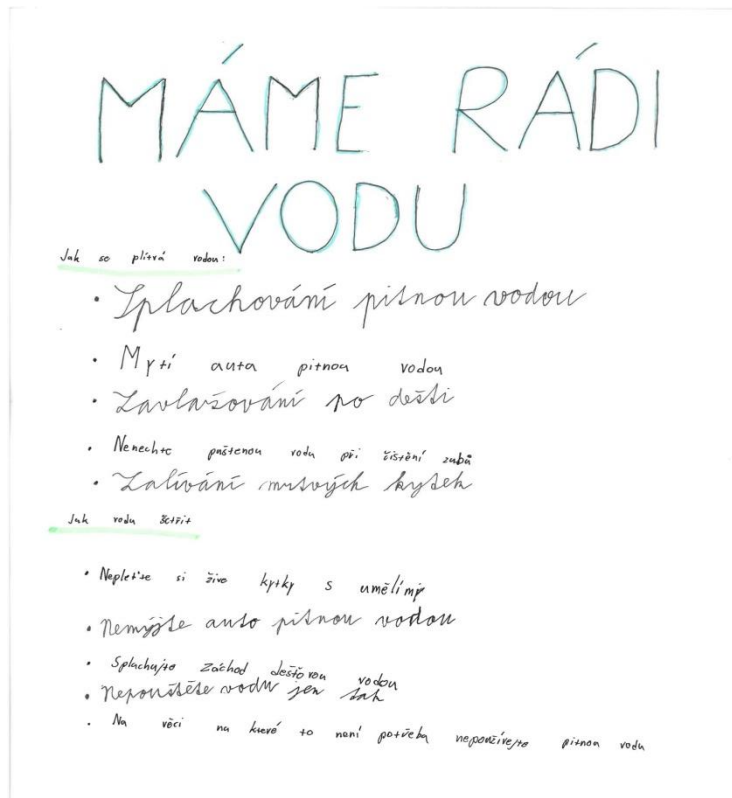 MÁME RÁDI
VODU
Jak se plítvá vodou:
• Splachování pitnou vodou
• Mytí auta pitnou vodou
• Zavlažování po dešti
• Nenechte puštenou vodu při čištění zubů
• Zalívání mrtvých kytek
Jak vodu šetřit
• Neplеťte si živé kytky s umělími
• Nemýjte auto pitnou vodou
• Splachujte záchod dešťovou vodou
• Nepouštěte vodu jen tak
• Na věci na které to není potřeba nepoužívejte pitnou vodu